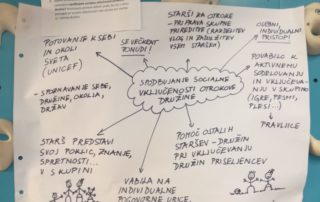 POTOVANJE K SEBI
IN OKOLI
SVETA
(UNICEF)
- SPOZNAVANJE SEBE,
DRUŽINE, OKOLJA,
DRŽAV
ŠE VEČKRAT
PONUDI!
STARŠI ZA OTROKE
- PRIPRAVA SKUPNE
PRIREDITVE (RAZDELITEV
VLOG IN ZADOLŽITEV
VSEM STARŠEM)
OSEBNI,
INDIVIDUALNI
PRISTOP!
SPODBUJANJE SOCIALNE
VKLJUČENOSTI OTROKOVE
DRUŽINE
POVABILO K
AKTIVNEMU
SODELOVANJU
IN VKLJUČEVA-
NJU V SKUPINO
(IGRE, PESMI,
PLESI...)
PRAVLJICE
STARŠ PREDSTAVI
SVOJ POKLIC, ZNANJE,
SPRETNOSTI...
V SKUPINI
VABILA NA
INDIVIDUALNE
POGOVORNE URICE
POMOČ OSTALIH
STARŠEV - DRUŽIN
PRI VKLJUČEVANJU
DRUŽIN PRISELJENCEV